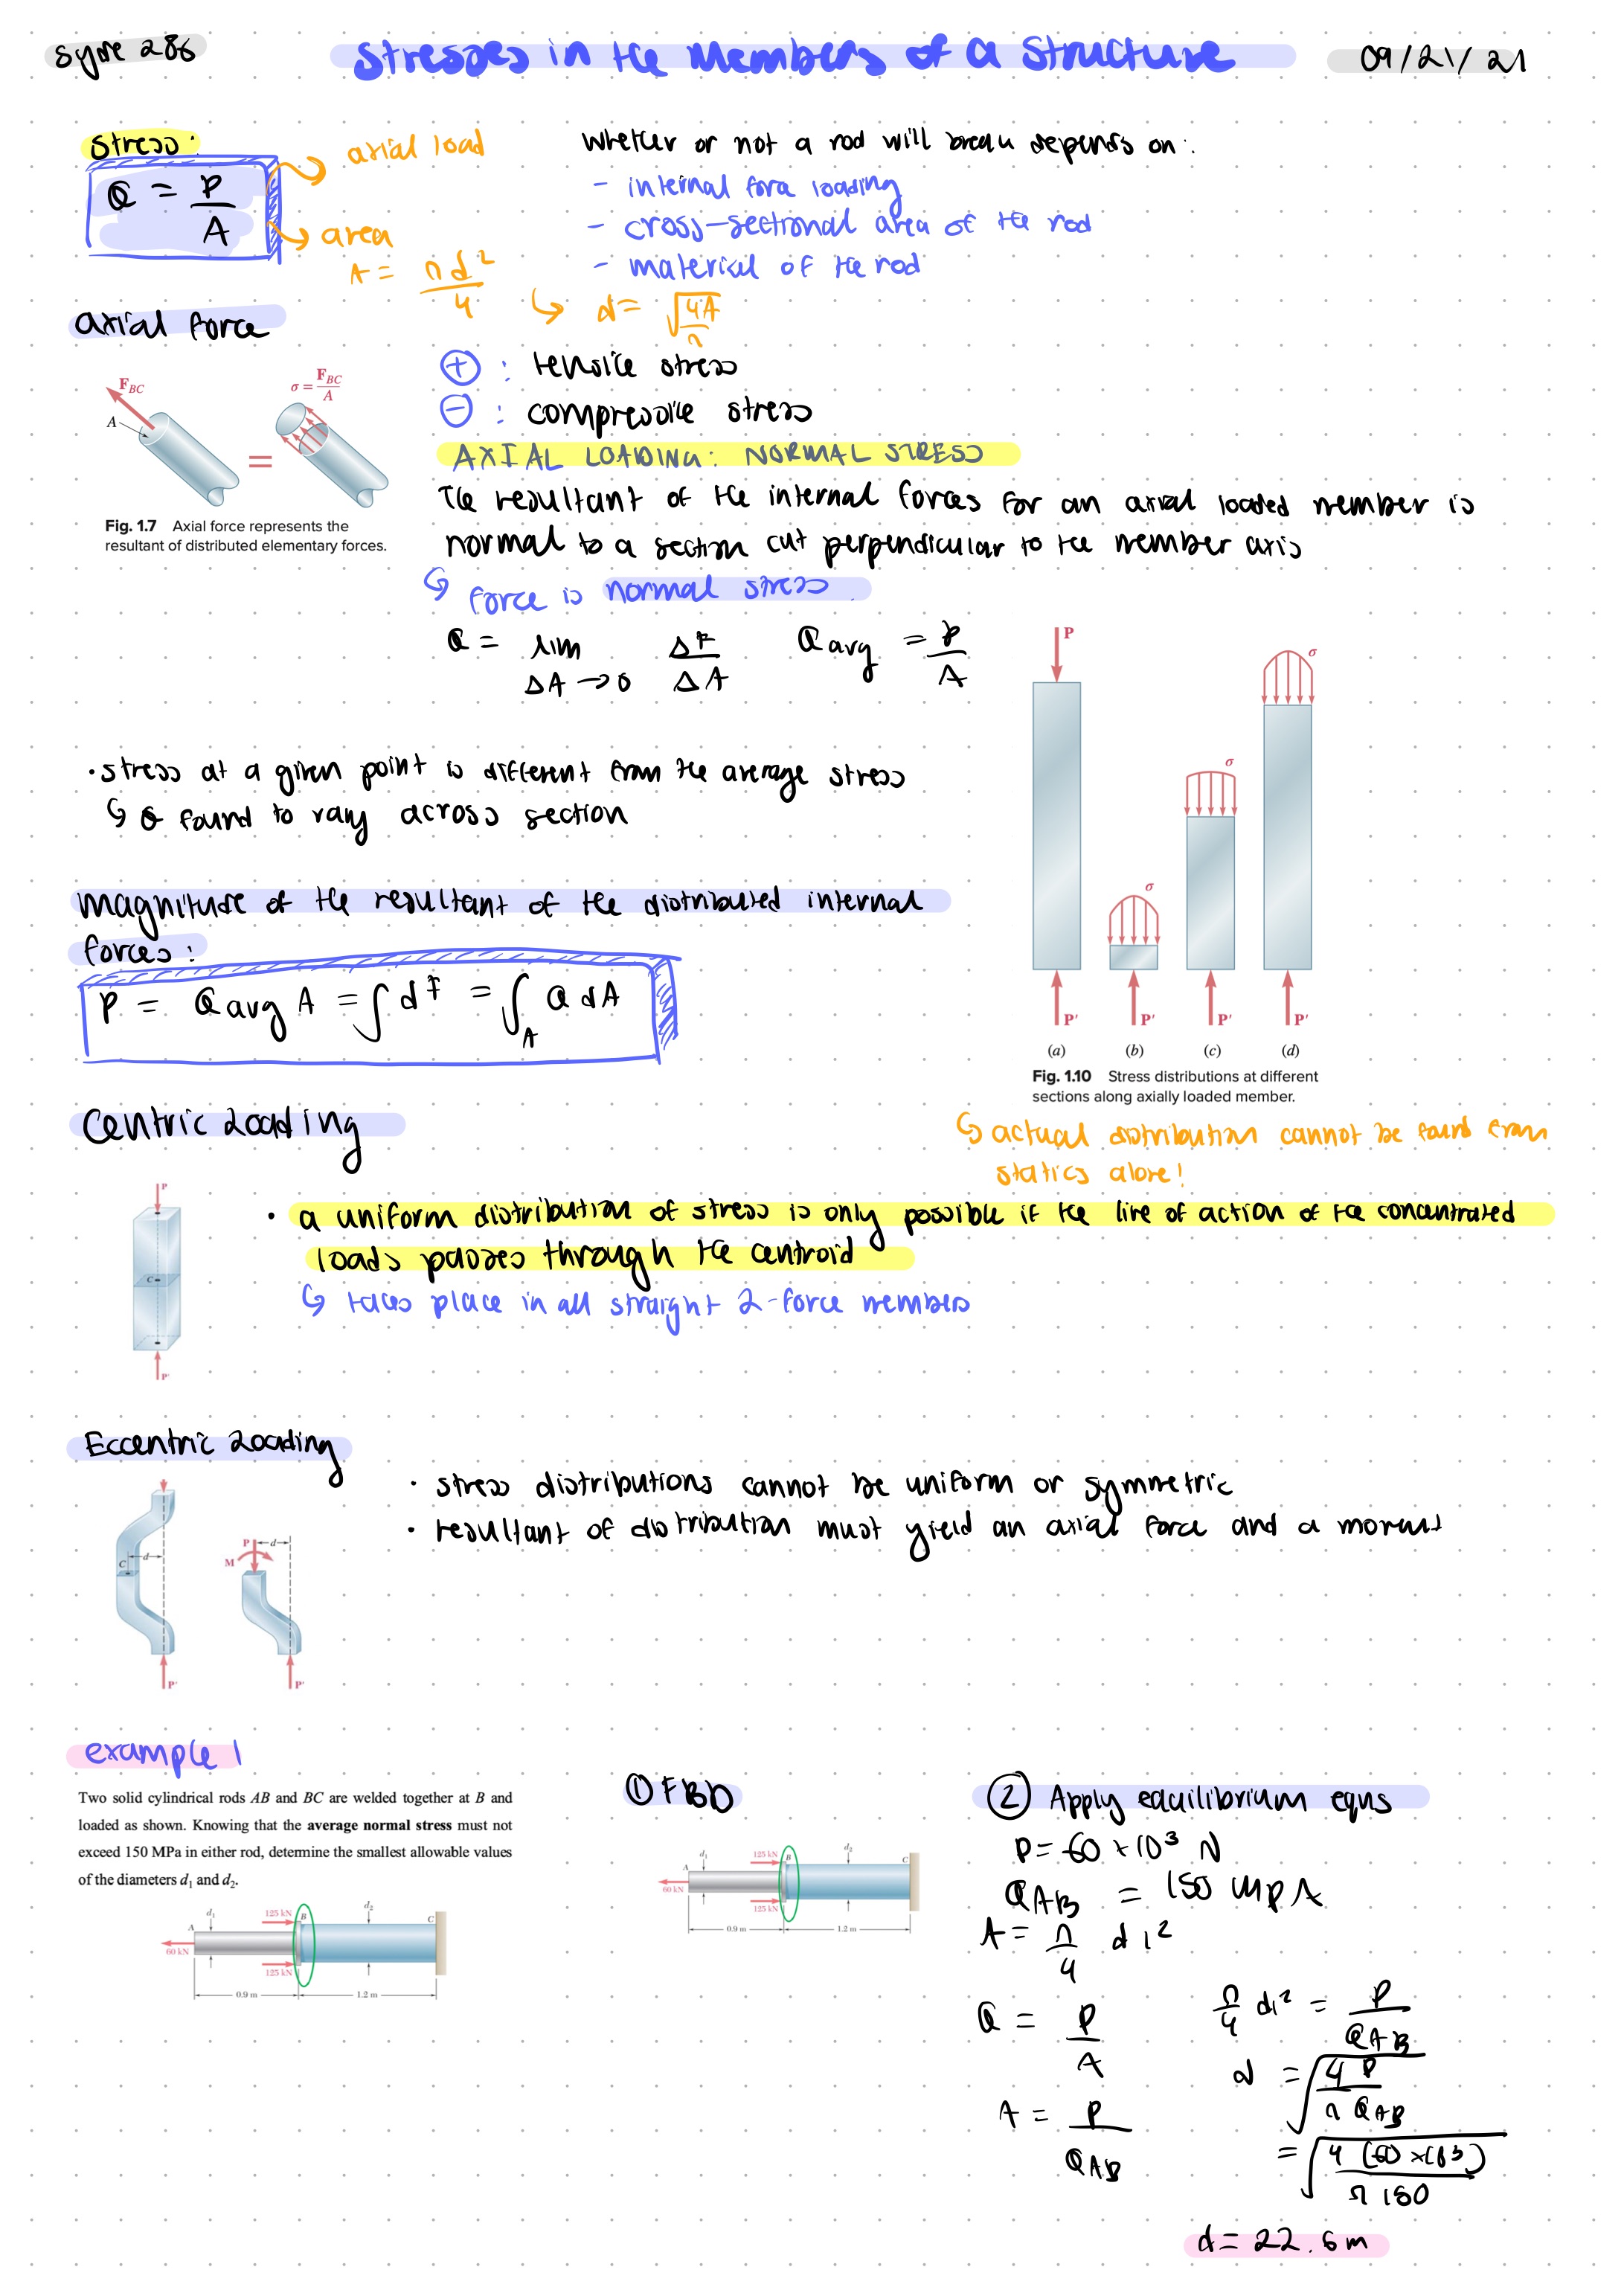 Syde 286
Stresses in the Members of a Structure
09/21/21
Stress:
σ = P / A
axial load
area
A = πd² / 4
↳ d = √(4A / π)
Whether or not a rod will break depends on:
- internal force loading
- cross-sectional area of the rod
- material of the rod
axial force
F_BC
A
=
σ = F_BC / A
Fig. 1.7 Axial force represents the
resultant of distributed elementary forces.
⊕ : tensile stress
⊖ : compressive stress
AXIAL LOADING: NORMAL STRESS
The resultant of the internal forces for an axial loaded member is
normal to a section cut perpendicular to the member axis
↳ force is normal stress.
σ = lim ΔA→0 ΔF / ΔA
σ avg = P / A
• stress at a given point is different from the average stress
↳ σ found to vary across section
magnitude of the resultant of the distributed internal
forces:
P = σ avg A = ∫ dF = ∫_A σ dA
P
σ
σ
σ
P' P' P' P'
(a) (b) (c) (d)
Fig. 1.10 Stress distributions at different
sections along axially loaded member.
↳ actual distribution cannot be found from
statics alone!
Centric Loading
P
C
P'
• a uniform distribution of stress is only possible if the line of action of the concentrated
loads passes through the centroid
↳ takes place in all straight 2-force members
Eccentric Loading
C
d
P'
P
d
M
P'
• stress distributions cannot be uniform or symmetric
• resultant of distribution must yield an axial force and a moment
example 1
Two solid cylindrical rods AB and BC are welded together at B and
loaded as shown. Knowing that the average normal stress must not
exceed 150 MPa in either rod, determine the smallest allowable values
of the diameters d₁ and d₂.
A
d₁
125 kN
B
d₂
C
60 kN
125 kN
0.9 m
1.2 m
① FBD
A
d₁
125 kN
B
d₂
C
60 kN
125 kN
0.9 m
1.2 m
② Apply equilibrium eqns
P = 60 × 10³ N
σAB = 150 MPA
A = π/4 d₁²
σ = P / A
A = P / σAB
π/4 d₁² = P / σAB
d = √(4P / π σAB)
= √(4 (60 × 10³) / π 150)
d = 22.6 m